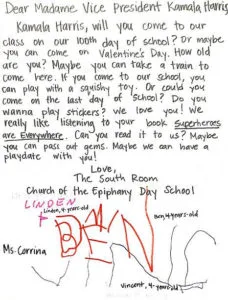 Dear Madame Vice President Kamala Harris
Kamala Harris, will you come to our
class on our 100th day of school? Or maybe
you can come on Valentine's Day. How old
are you? Maybe you can take a train to
come here. If you come to our school, you
can play with a squishy toy. Or could you
come on the last day of School? Do you
wanna play stickers? We love you! We
really like listening to your book Superheroes
are Everywhere. Can you read it to us? Maybe
you can pass out gems. Maybe we can have a
playdate with you!
Love,
The South Room
Church of the Epiphany Day School
LINDEN
Linden, 4-years-old
BEN
Ben, 4-years-old
Ms. Corrina
Vincent, 4-years-old